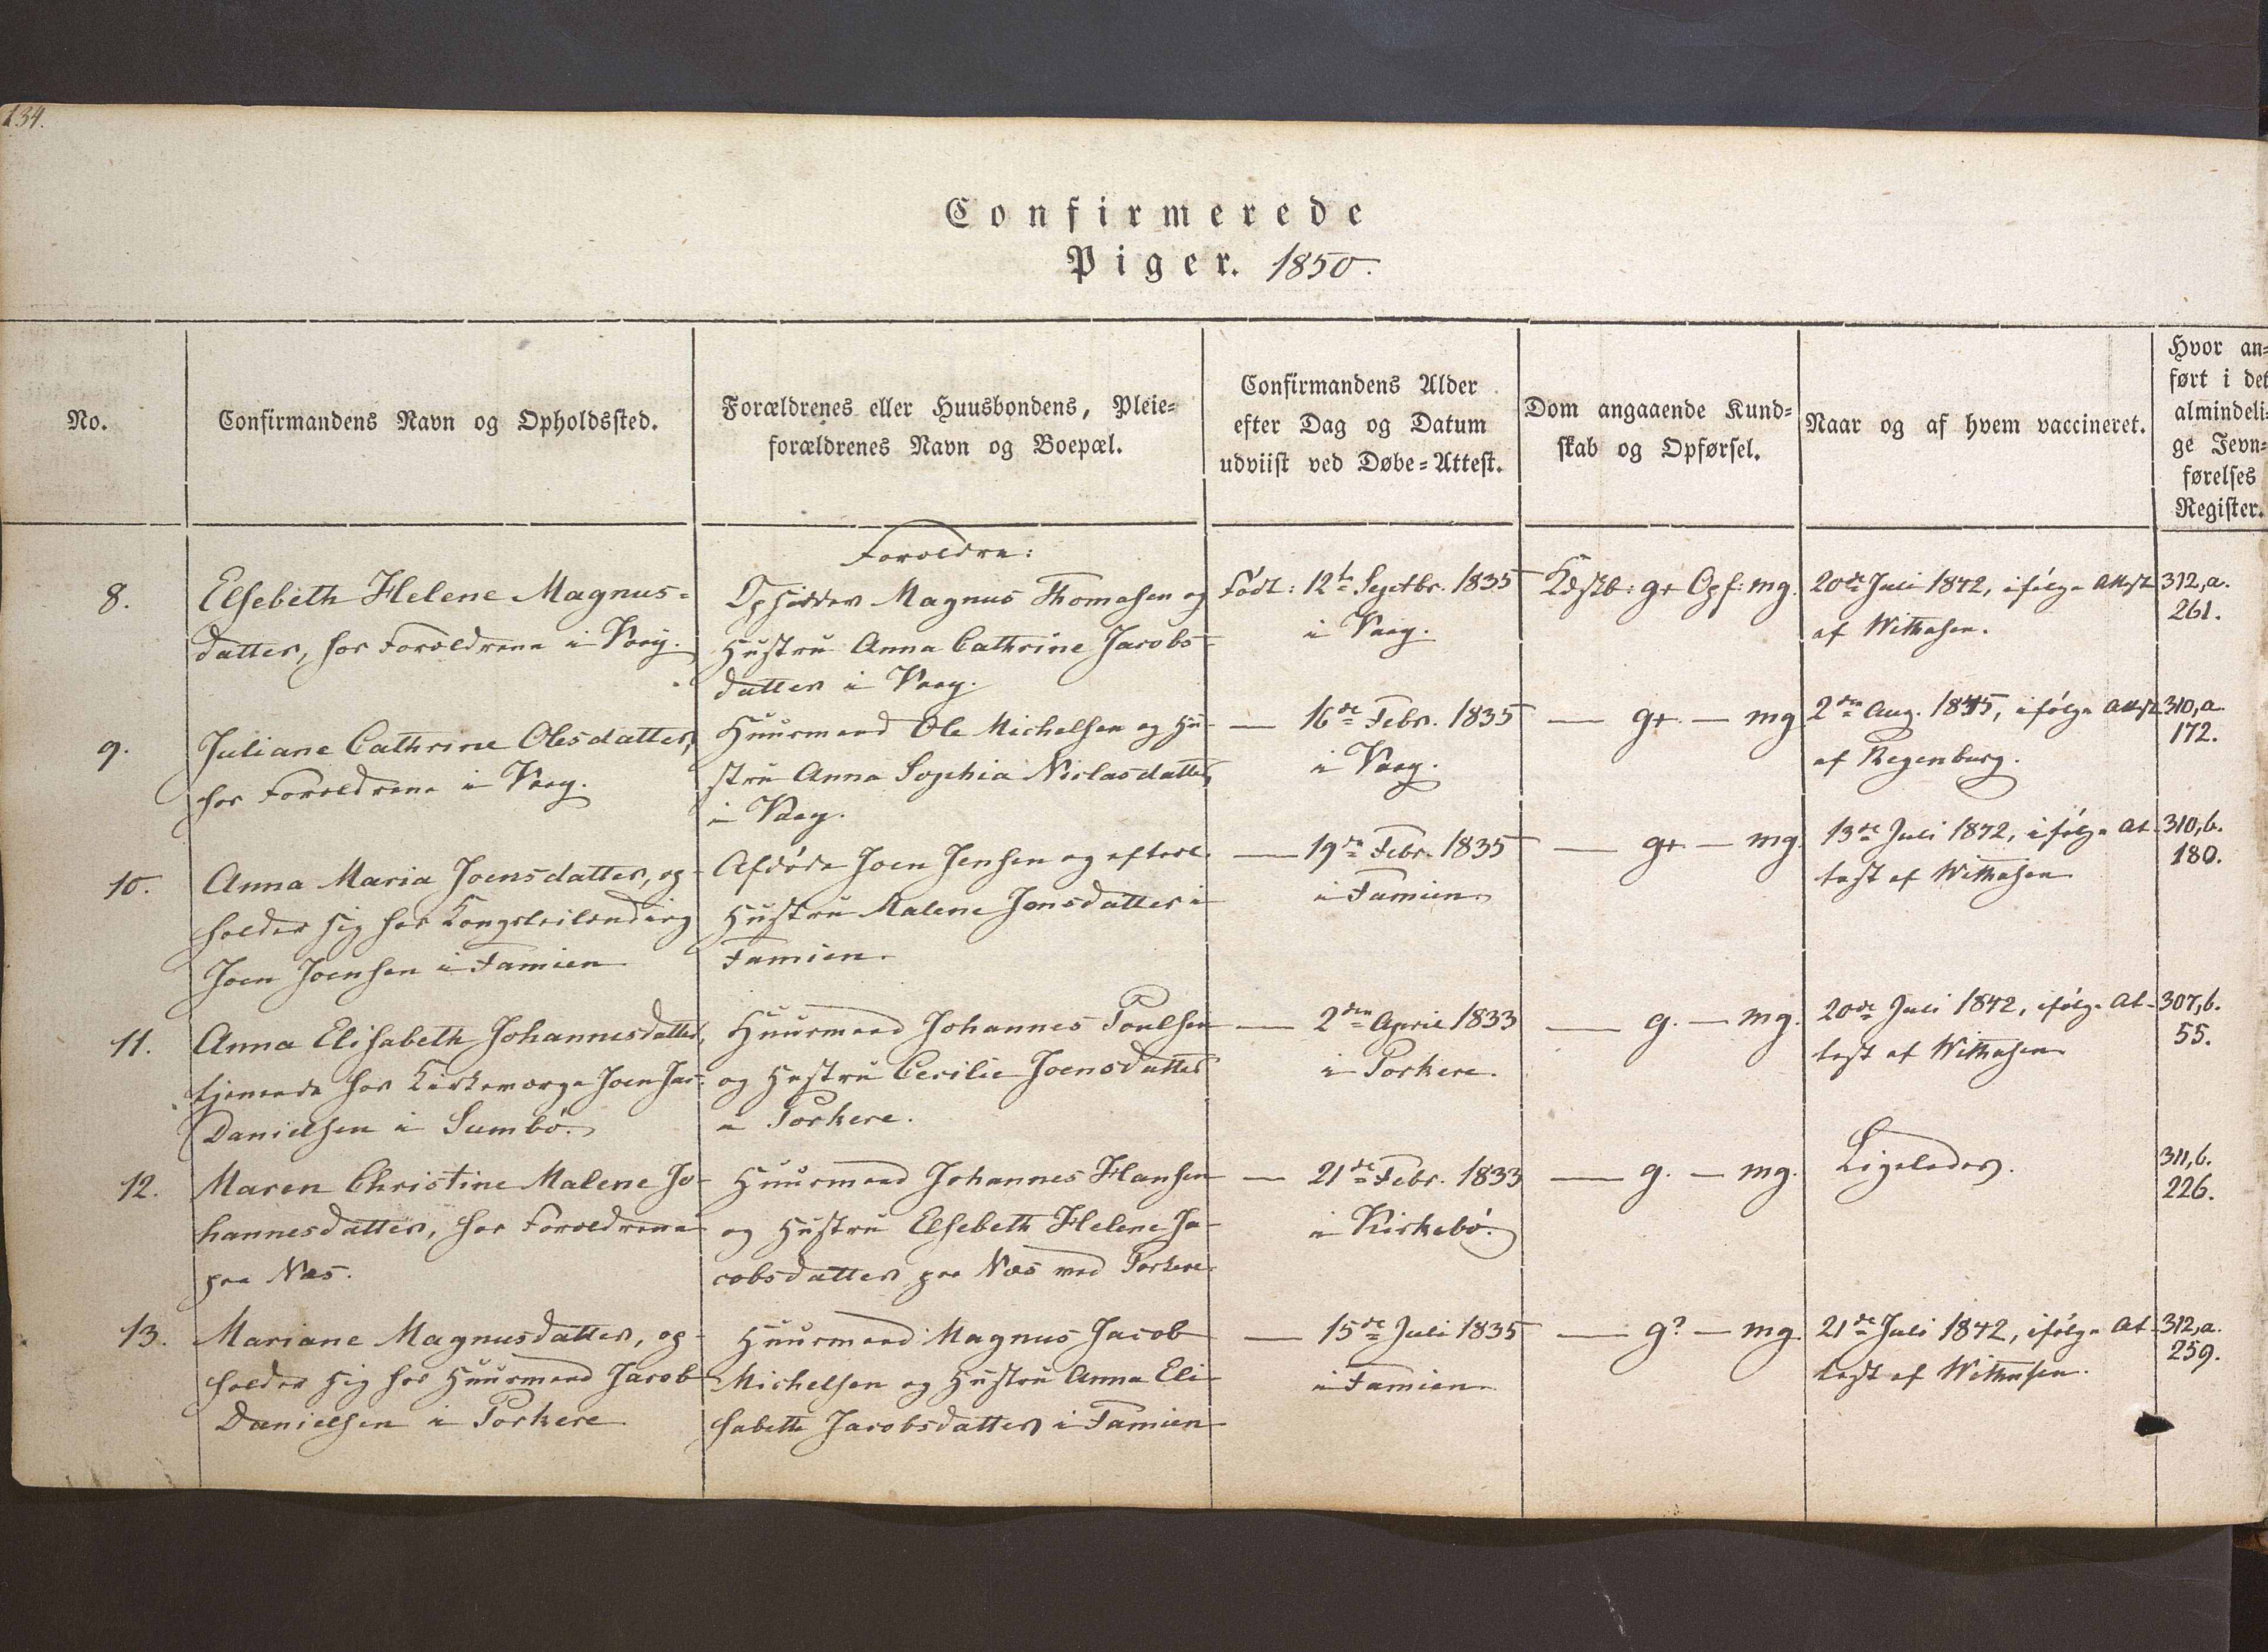 134.
Confirmerede
Piger. 1850.
No.
Confirmandens Navn og Opholdssted.
Forældrenes eller Huusbondens, Pleie=
forældrenes Navn og Boepæl.
Confirmandens Alder
efter Dag og Datum
udviist ved Døbe=Attest.
Dom angaaende Kund=
skab og Opførsel.
Naar og af hvem vaccineret.
Hvor an=
ført i det
almindeli=
ge Jevn=
førelses
Register.
8.
Elsebeth Helene Magnus=
datter, hos Forældrene i Vaag.
Forældre:
Opsidder Magnus Thomasen og
Hustru Anna Cathrine Jacobs-
datter i Vaag.
Født: 12te Septbr. 1835
i Vaag.
Kdskb: g+ Opf: mg.
20de Juli 1842, ifølge Attest
af Withasen.
312,a.
261.
9.
Juliane Cathrine Olesdatter,
hos Forældrene i Vaag.
Huusmand Ole Michelsen og Hu-
stru Anna Sophia Niclasdatter
i Vaag.
— 16de Febr. 1835
i Vaag.
— g+ — mg
2den Aug. 1845, ifølge Attest
af Regenburg.
310,a.
172.
10.
Anna Maria Joensdatter, op-
holder sig hos Kongsleilending
Joen Joensen i Famien
Afdøde Joen Jensen og efterl.
Hustru Malene Jonsdatter i
Famien.
— 19de Febr. 1835
i Famien
— g+ — mg.
13de Juli 1842, ifølge At-
test af Withasen
310,b.
180.
11.
Anna Elisabeth Johannesdatter,
tjenende hos Kirkeværge Joen Jac:
Danielsen i Sumbø.
Huusmand Johannes Poulsen
og Hustru Cecilie Joensdatter
i Porkere.
— 2den April 1833
i Porkere.
— g. — mg.
20de Juli 1842, ifølge At-
test af Withasen
307,b.
55.
12.
Maren Christine Malene Jo-
hannesdatter, hos Forældrene
paa Næs.
Huusmand Johannes Hansen
og Hustru Elsebeth Helene Ja-
cobsdatter paa Næs ved Porkere
— 21de Febr. 1833
i Kirkebø.
— g. — mg.
Ligeledes.
311,b.
226.
13.
Mariane Magnusdatter, op-
holder sig hos Huusmand Jacob
Danielsen i Porkere
Huusmand Magnus Jacob
Michelsen og Hustru Anna Eli-
sabeth Jacobsdatter i Famien
— 15de Juli 1835
i Famien
— g? — mg.
21de Juli 1842, ifølge At-
test af Withasen.
312,a.
259.